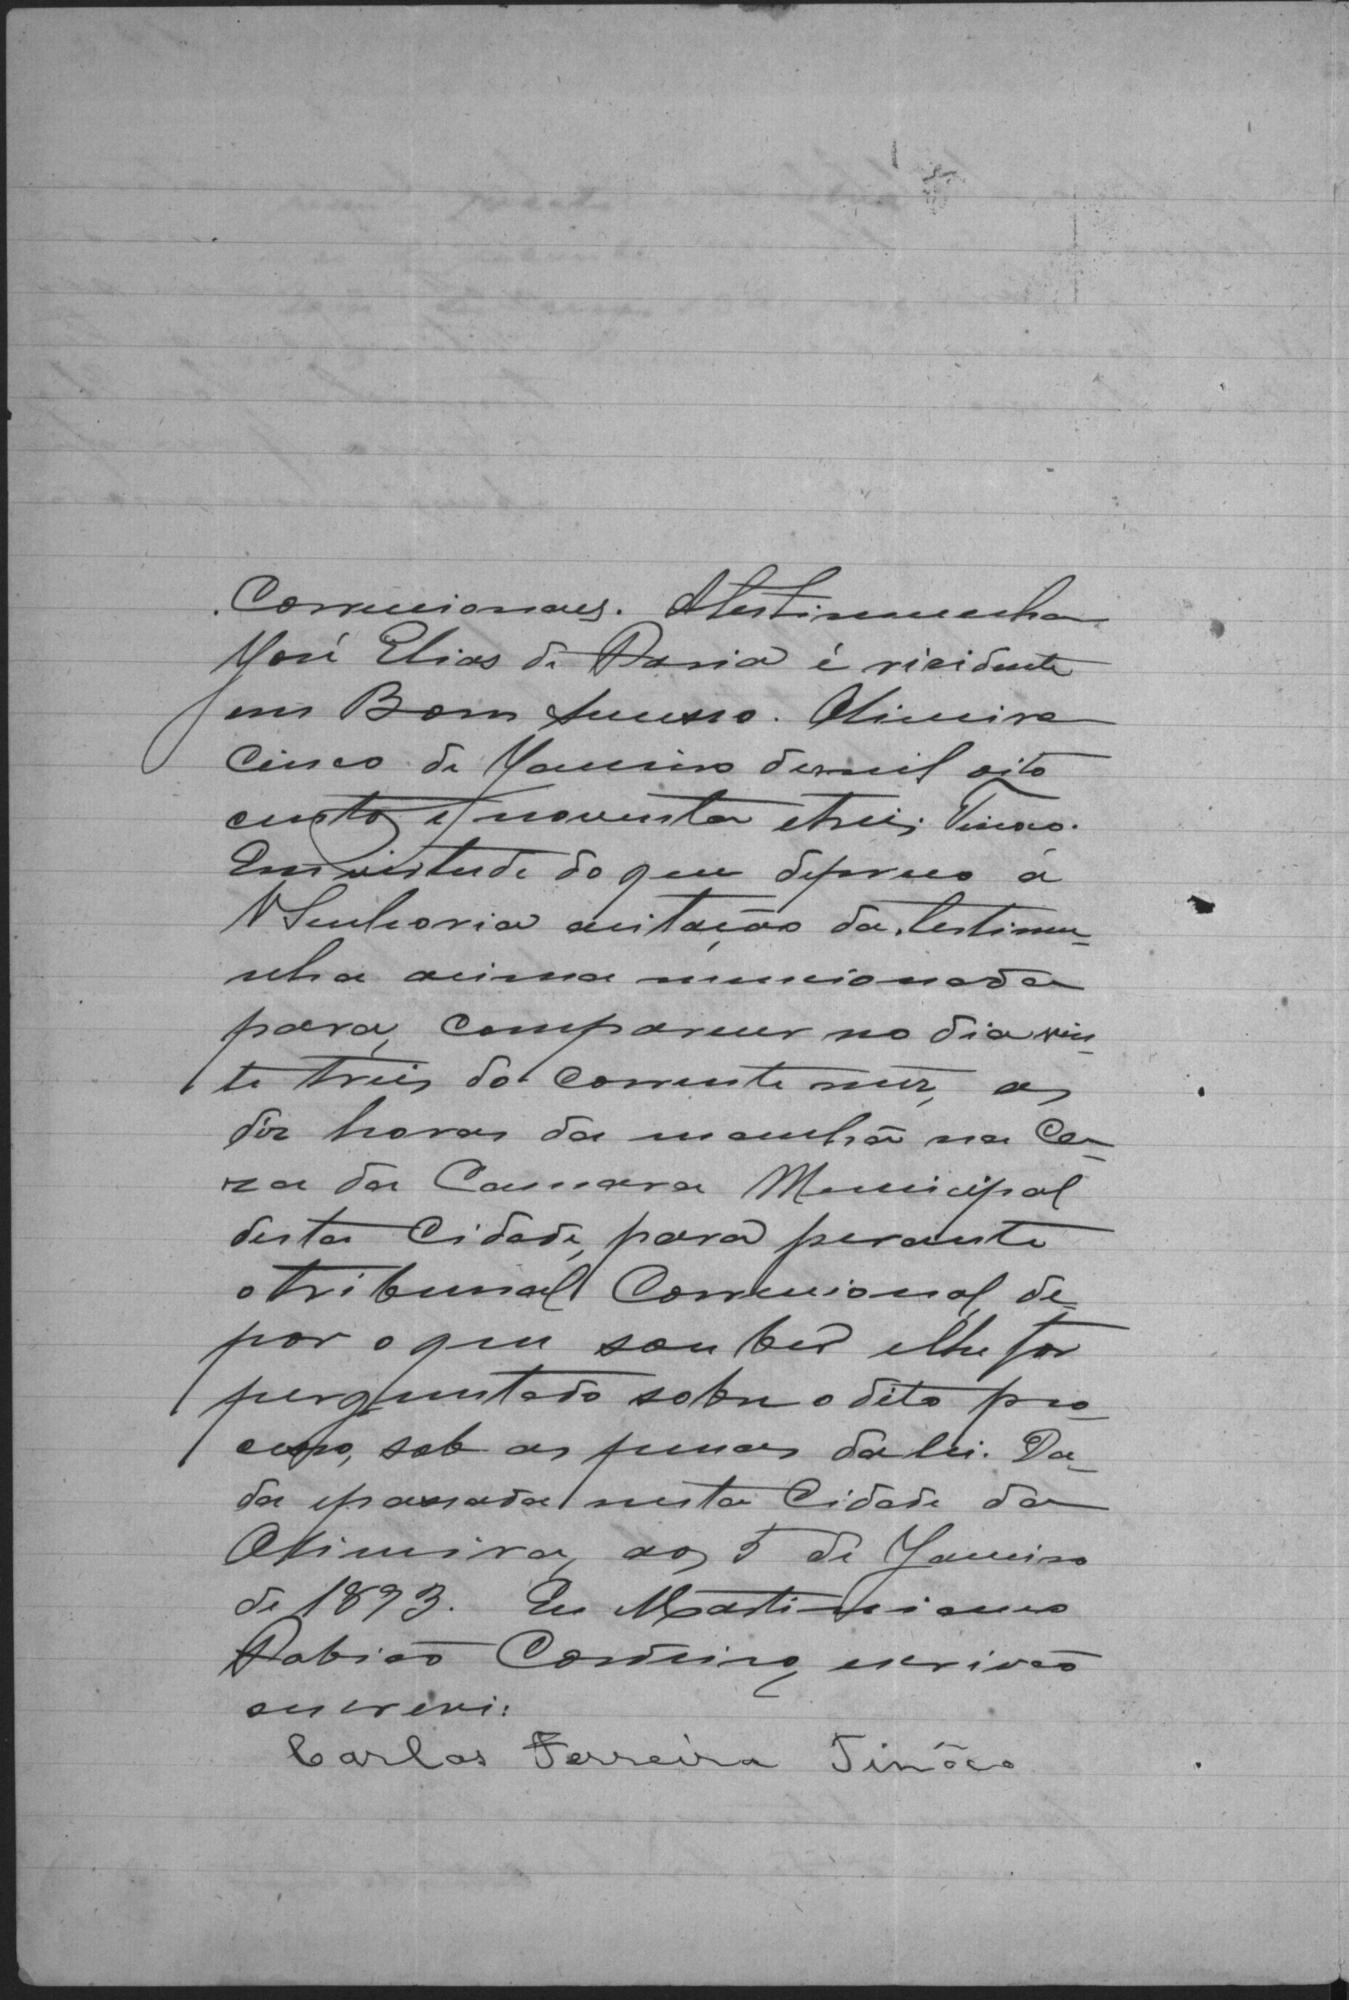 Correcionaes. Atestimunha
José Elias de Faria é risidente
em Bom Sucesso. Oliveira
cinco de Janeiro demil oito
centos e noventa etreis. Tinoco.
Em virtude do que depreco á
V Senhoria acitação da testimu-
nha acima mencionada
para, comparecer no dia vin-
te treis do corrente mez, as
déz horas da manhã na Ca-
za da Camara Municipal
desta Cidade, para perante
otribunal Correcional, de-
por oque souber elhe for
perguntado sobre odito pro-
cesso, sob as penas da lei. Da-
da epassada nesta Cidade da
Oliveira, aos 5 de Janeiro
de 1893. Eu Martiniano
Fabião Cordeiro, escrivão
escrevi.
Carlos Ferreira Tinôco